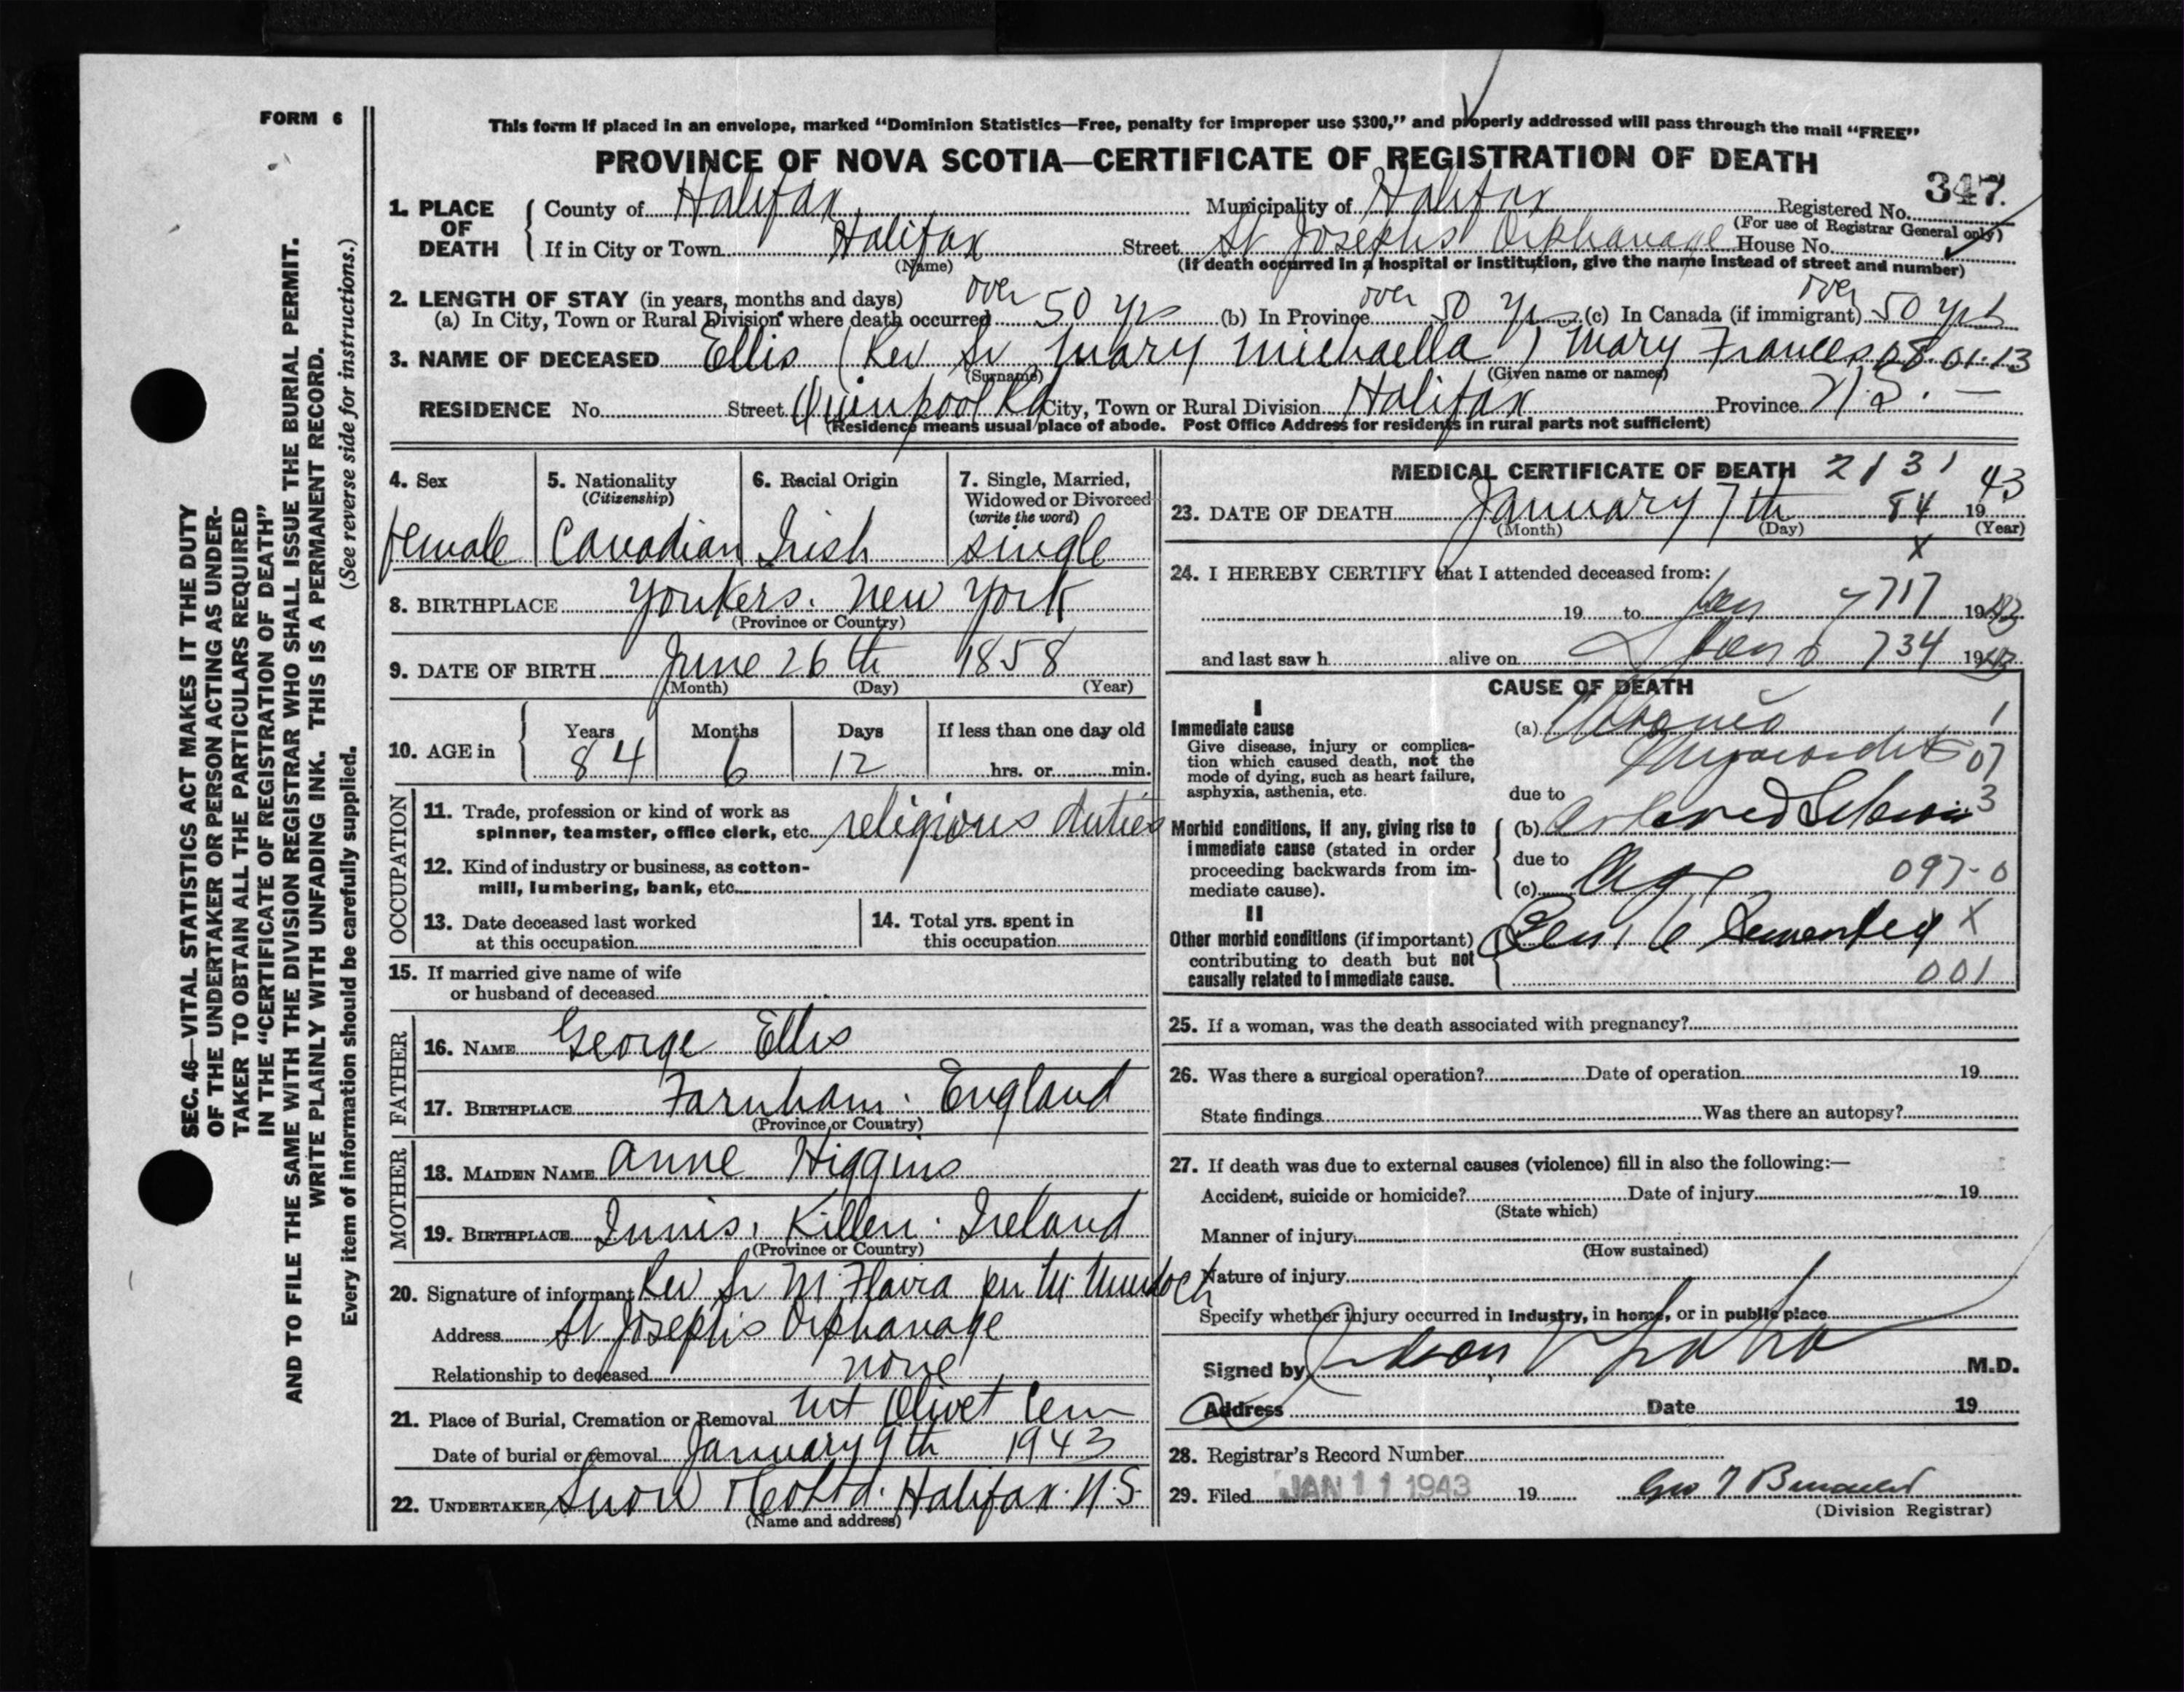 FORM 6
This form if placed in an envelope, marked “Dominion Statistics—Free, penalty for improper use $300,” and properly addressed will pass through the mail “FREE”
PROVINCE OF NOVA SCOTIA—CERTIFICATE OF REGISTRATION OF DEATH
347.
1. PLACE OF DEATH
County of Halifax Municipality of Halifax Registered No.
(For use of Registrar General only)
If in City or Town Halifax Street St Joseph's Orphanage House No.
(Name) (If death occurred in a hospital or institution, give the name instead of street and number)
2. LENGTH OF STAY (in years, months and days)
(a) In City, Town or Rural Division where death occurred over 50 yrs (b) In Province over 50 yrs (c) In Canada (if immigrant) over 50 yrs
3. NAME OF DECEASED Ellis (Rev Sr Mary Michaella) Mary Frances 08.01.13
(Surname) (Given name or names)
RESIDENCE No. Street Quinpool Rd City, Town or Rural Division Halifax Province N.S. —
(Residence means usual place of abode. Post Office Address for residents in rural parts not sufficient)
4. Sex
female
5. Nationality
(Citizenship)
Canadian
6. Racial Origin
Irish
7. Single, Married,
Widowed or Divorced
(write the word)
single
8. BIRTHPLACE Yonkers. New York
(Province or Country)
9. DATE OF BIRTH June 26th 1858
(Month) (Day) (Year)
10. AGE in
Years Months Days If less than one day old
84 6 12 hrs. or min.
OCCUPATION
11. Trade, profession or kind of work as
spinner, teamster, office clerk, etc. religious duties
12. Kind of industry or business, as cotton-
mill, lumbering, bank, etc.
13. Date deceased last worked
at this occupation
14. Total yrs. spent in
this occupation
15. If married give name of wife
or husband of deceased
FATHER
16. NAME George Ellis
17. BIRTHPLACE Farnham. England
(Province or Country)
MOTHER
18. MAIDEN NAME Anne Higgins
19. BIRTHPLACE Innis. Killen. Ireland
(Province or Country)
20. Signature of informant Rev Sr M. Flavia per M. Murdoch
Address St Joseph's Orphanage
Relationship to deceased none
21. Place of Burial, Cremation or Removal Mt Olivet Cem
Date of burial or removal January 9th 1943
22. UNDERTAKER Snow & Co Ltd. Halifax. N.S.
(Name and address)
MEDICAL CERTIFICATE OF DEATH 2131
23. DATE OF DEATH January 7th 84 19 43
(Month) (Day) (Year)
X
24. I HEREBY CERTIFY that I attended deceased from:
19 to Jan 7 717 19 43
and last saw h alive on Jan 6 734 19 43
CAUSE OF DEATH
I
Immediate cause
Give disease, injury or complica-
tion which caused death, not the
mode of dying, such as heart failure,
asphyxia, asthenia, etc.
(a) 1
Myocarditis 07
due to
Morbid conditions, if any, giving rise to
immediate cause (stated in order
proceeding backwards from im-
mediate cause).
(b) 3
due to
(c) Age 097-0
II
Other morbid conditions (if important)
contributing to death but not
causally related to immediate cause.
X
001
25. If a woman, was the death associated with pregnancy?
26. Was there a surgical operation? Date of operation 19
State findings Was there an autopsy?
27. If death was due to external causes (violence) fill in also the following:—
Accident, suicide or homicide? Date of injury 19
(State which)
Manner of injury
(How sustained)
Nature of injury
Specify whether injury occurred in industry, in home, or in public place
Signed by M.D.
Address Date 19
28. Registrar's Record Number
29. Filed JAN 11 1943 19 Geo
(Division Registrar)
SEC. 46—VITAL STATISTICS ACT MAKES IT THE DUTY
OF THE UNDERTAKER OR PERSON ACTING AS UNDER-
TAKER TO OBTAIN ALL THE PARTICULARS REQUIRED
IN THE “CERTIFICATE OF REGISTRATION OF DEATH”
AND TO FILE THE SAME WITH THE DIVISION REGISTRAR WHO SHALL ISSUE THE BURIAL PERMIT.
WRITE PLAINLY WITH UNFADING INK. THIS IS A PERMANENT RECORD.
Every item of information should be carefully supplied. (See reverse side for instructions.)